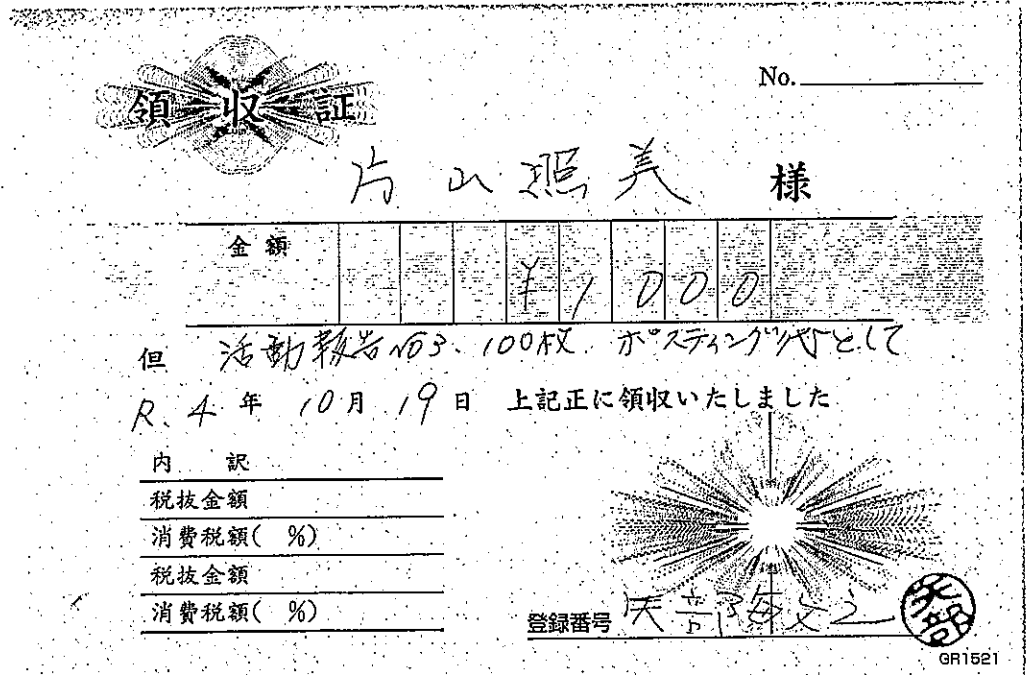 領収証
No.
片山照美 様
金額 ¥1000
但 活動報告No3、100枚 ポスティング代として
R.4年10月19日 上記正に領収いたしました
内 訳
税抜金額
消費税額( %)
税抜金額
消費税額( %)
登録番号 矢部
矢部
GR1521